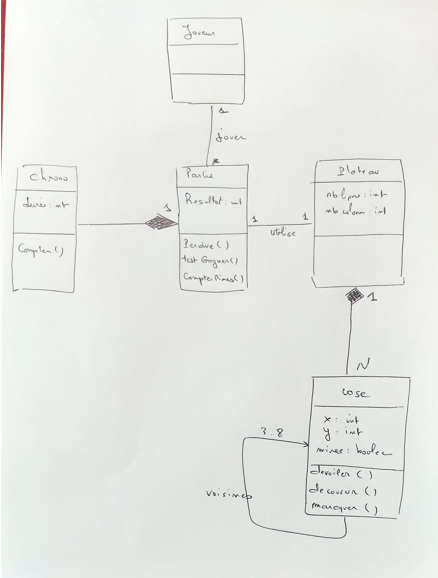 Joueur
1
jouer
*
Chrono
durée : int
Compter ( )
1
Partie
Resultat : int
Perdue ( )
test Gagner ( )
Compte Mines ( )
1
1
utilise
Plateau
nb ligne : int
nb colonn : int
1
N
case
x : int
y : int
minee : boolee
devoiler ( )
decouvrir ( )
marquer ( )
3..8
voisines